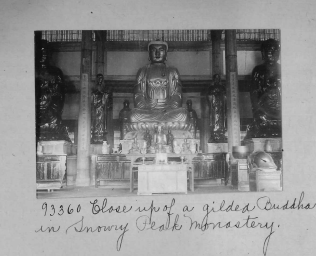 93360 Close up of a gilded Buddha
in Snowy Peak Monastery.